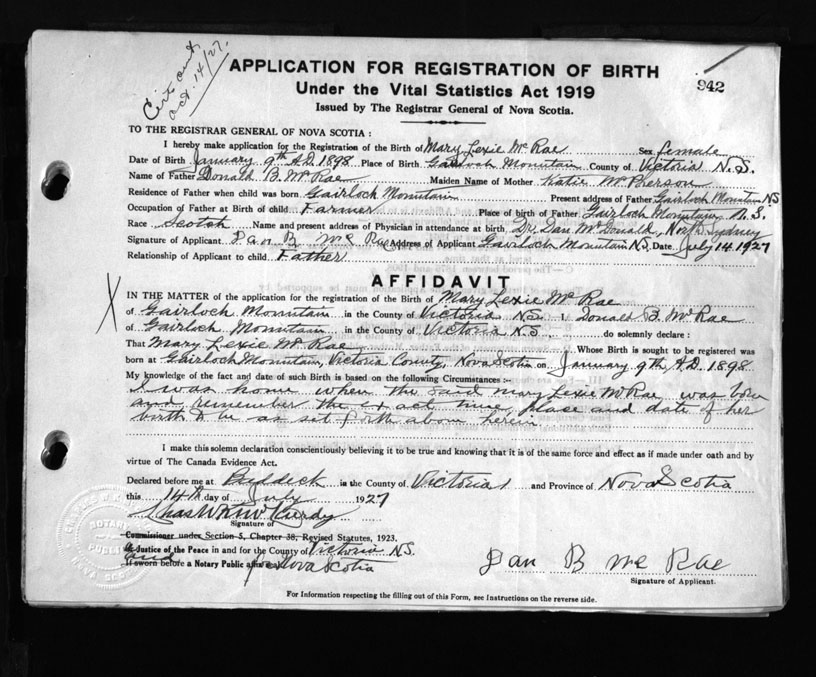 Certs out
Oct. 14/27.
APPLICATION FOR REGISTRATION OF BIRTH
942
Under the Vital Statistics Act 1919
Issued by The Registrar General of Nova Scotia.
TO THE REGISTRAR GENERAL OF NOVA SCOTIA :
I hereby make application for the Registration of the Birth of Mary Lexie McRae Sex female
Date of Birth January 9th A.D. 1898 Place of Birth Gairloch Mountain County of Victoria N.S.
Name of Father Donald B. McRae Maiden Name of Mother Katie McPherson
Residence of Father when child was born Gairloch Mountain Present address of Father Gairloch Mountain NS
Occupation of Father at Birth of child Farmer Place of birth of Father Gairloch Mountain N.S.
Race Scotch Name and present address of Physician in attendance at birth Dr. Dan McDonald, North Sydney
Signature of Applicant Dan B McRae Address of Applicant Gairloch Mountain N.S. Date July 14. 1927
Relationship of Applicant to child Father
AFFIDAVIT
X
IN THE MATTER of the application for the registration of the Birth of Mary Lexie McRae
of Gairloch Mountain in the County of Victoria N.S. I, Donald B. McRae
of Gairloch Mountain in the County of Victoria N.S. do solemnly declare :
That Mary Lexie McRae Whose Birth is sought to be registered was
born at Gairloch Mountain, Victoria County, Nova Scotia on January 9th A.D. 1898
My knowledge of the fact and date of such Birth is based on the following Circumstances :-
I was home when the said Mary Lexie McRae was born
and remember the exact time, place and date of her
birth to be as set forth above herein
I make this solemn declaration conscientiously believing it to be true and knowing that it is of the same force and effect as if made under oath and by
virtue of The Canada Evidence Act.
Declared before me at Baddeck in the County of Victoria and Province of Nova Scotia
this 14th day of July 1927
Signature of
Commissioner under Section 5, Chapter 38, Revised Statutes, 1923.
a Justice of the Peace in and for the County of Victoria N.S.
and
If sworn before a Notary Public affix seal for Nova Scotia
Dan B Mc Rae
Signature of Applicant.
For Information respecting the filling out of this Form, see Instructions on the reverse side.